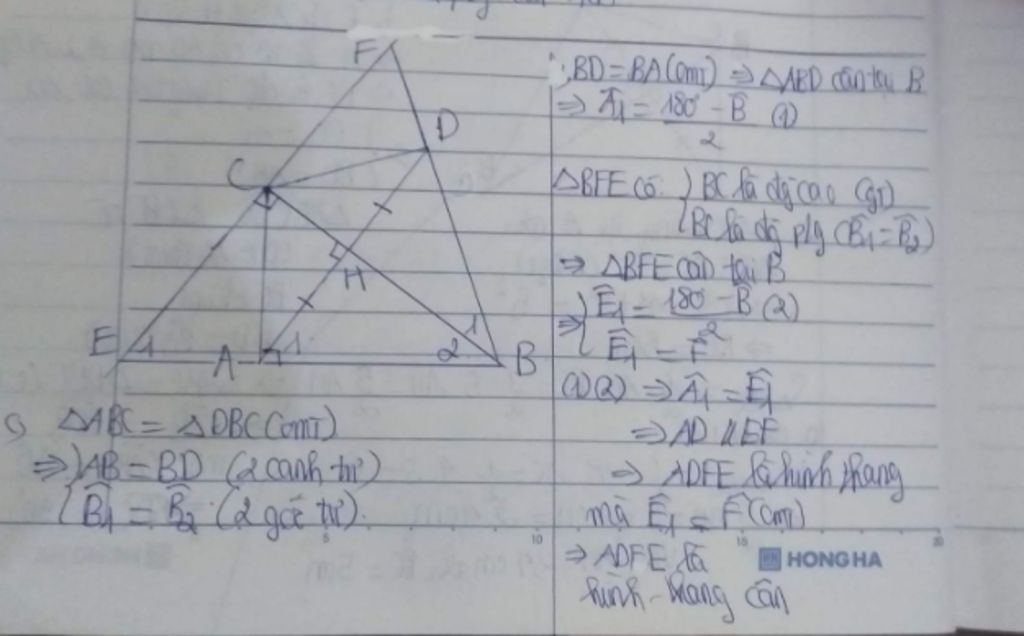 F
D
C
H
E 1 A 1 2 1 B
c) △ABC = △DBC (cmt)
⇒ { AB = BD (2 cạnh tư)
{ B̂1 = B̂2 (2 góc tư).
BD = BA (cmt) ⇒ △ABD cân tại B
⇒ Â1 = (180° - B̂)/2 (1)
△BFE có { BC là đg cao (gt)
{ BC là đg p/g (B̂1 = B̂2)
⇒ △BFE cân tại B
⇒ { Ê1 = (180° - B̂)/2 (2)
{ Ê1 = F̂
(1)(2) ⇒ Â1 = Ê1
⇒ AD // EF
⇒ ADFE là hình thang
mà Ê1 = F̂ (cmt)
⇒ ADFE là
hình thang cân
5 10 15 20
HONG HA